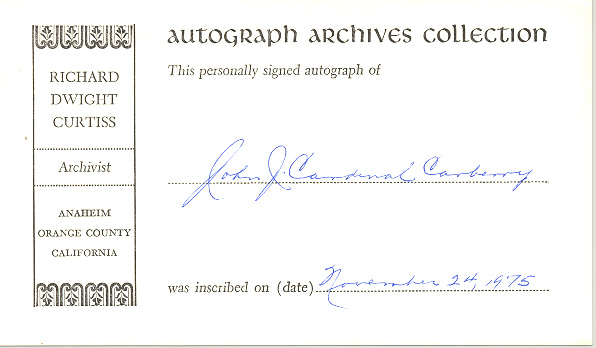 AUTOGRAPH ARCHIVES COLLECTION
This personally signed autograph of
John J. Cardinal Carberry
was inscribed on (date) November 24, 1975
RICHARD
DWIGHT
CURTISS
Archivist
ANAHEIM
ORANGE COUNTY
CALIFORNIA